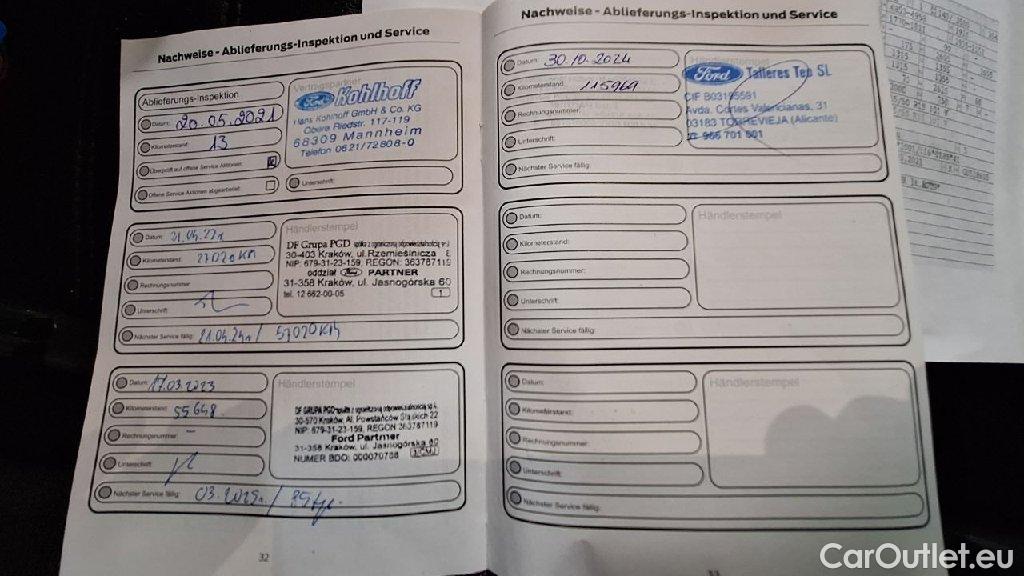 Nachweise - Ablieferungs-Inspektion und Service
Ablieferungs-Inspektion
Datum: 20.05.2021
Kilometerstand: 13
Überprüft auf offene Service Aktionen:
Offene Service Aktionen abgearbeitet:
Vertragspartner
Ford Kohlhoff
Hans Kohlhoff GmbH & Co. KG
Obere Riedstr. 117-119
68309 Mannheim
Telefon 0621/72808-0
Unterschrift:
Datum:
Kilometerstand: 27020 KM
Rechnungsnummer
Unterschrift:
Nächster Service fällig: 57020 KM
Händlerstempel
DF Grupa PGD spółka z ograniczoną odpowiedzialnością
30-403 Kraków, ul. Rzemieślnicza
NIP: 679-31-23-159, REGON: 363787119
oddział Ford PARTNER
31-358 Kraków, ul. Jasnogórska 60
tel. 12 662-00-05
1
Datum: 17.03.2023
Kilometerstand: 55648
Rechnungsnummer: -
Unterschrift:
Nächster Service fällig: 03.2025r. /
Händlerstempel
DF GRUPA PGD spółka z ograniczoną odpowiedzialnością
30-570 Kraków, Al. Powstańców Śląskich 22
NIP: 679-31-23-159, REGON 363787119
Ford Partner
31-358 Kraków, ul. Jasnogórska 60
NUMER BDO: 000070788
32
Nachweise - Ablieferungs-Inspektion und Service
Datum: 30.10.2024
Kilometerstand: 115969
Rechnungsnummer:
Unterschrift:
Nächster Service fällig:
Ford Talleres Tep SL
CIF B03195581
Avda. Cortes Valencianas, 31
03183 TORREVIEJA (Alicante)
966 701 001
Datum:
Kilometerstand:
Rechnungsnummer:
Unterschrift:
Nächster Service fällig:
Händlerstempel
Datum:
Kilometerstand:
Rechnungsnummer:
Unterschrift:
Nächster Service fällig:
Händlerstempel
33
CarOutlet.eu